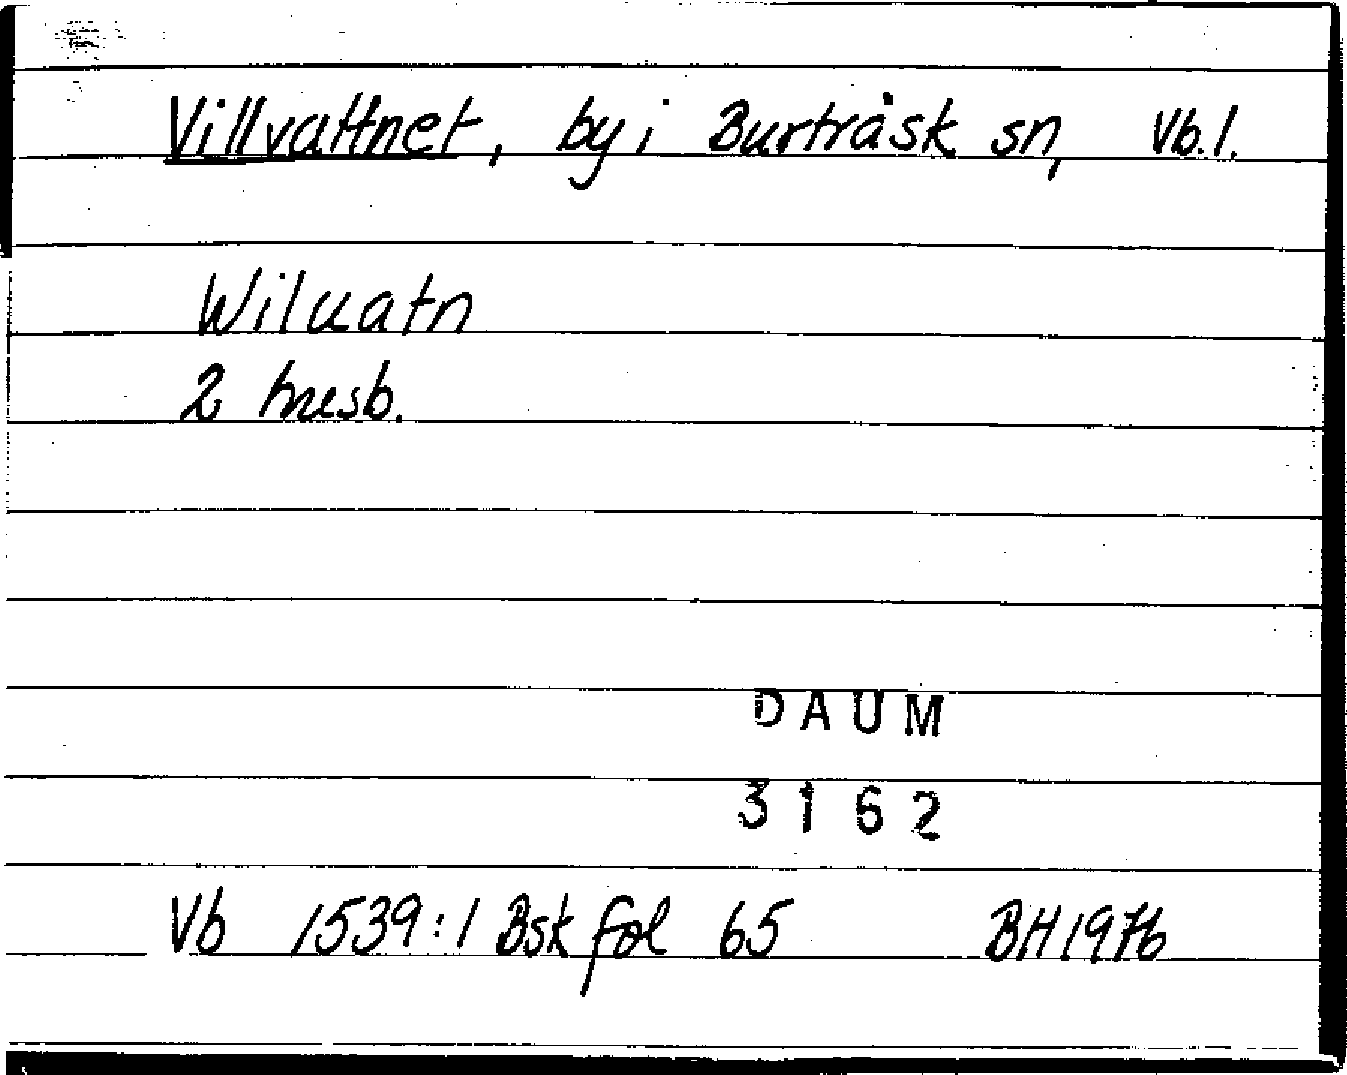 Villvattnet, by i Burträsk sn, Vb.l.
Wiluatn
2 husb.
DAUM
3162
Vb 1539:1 Bsk fol 65 BH1976